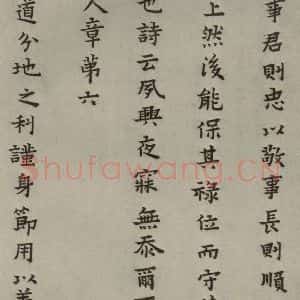 事君則忠以敬事長則順
上然後能保其祿位而守
也詩云夙興夜寐無忝爾
人章第六
道分地之利謹身節用以養
Shufawang.CN